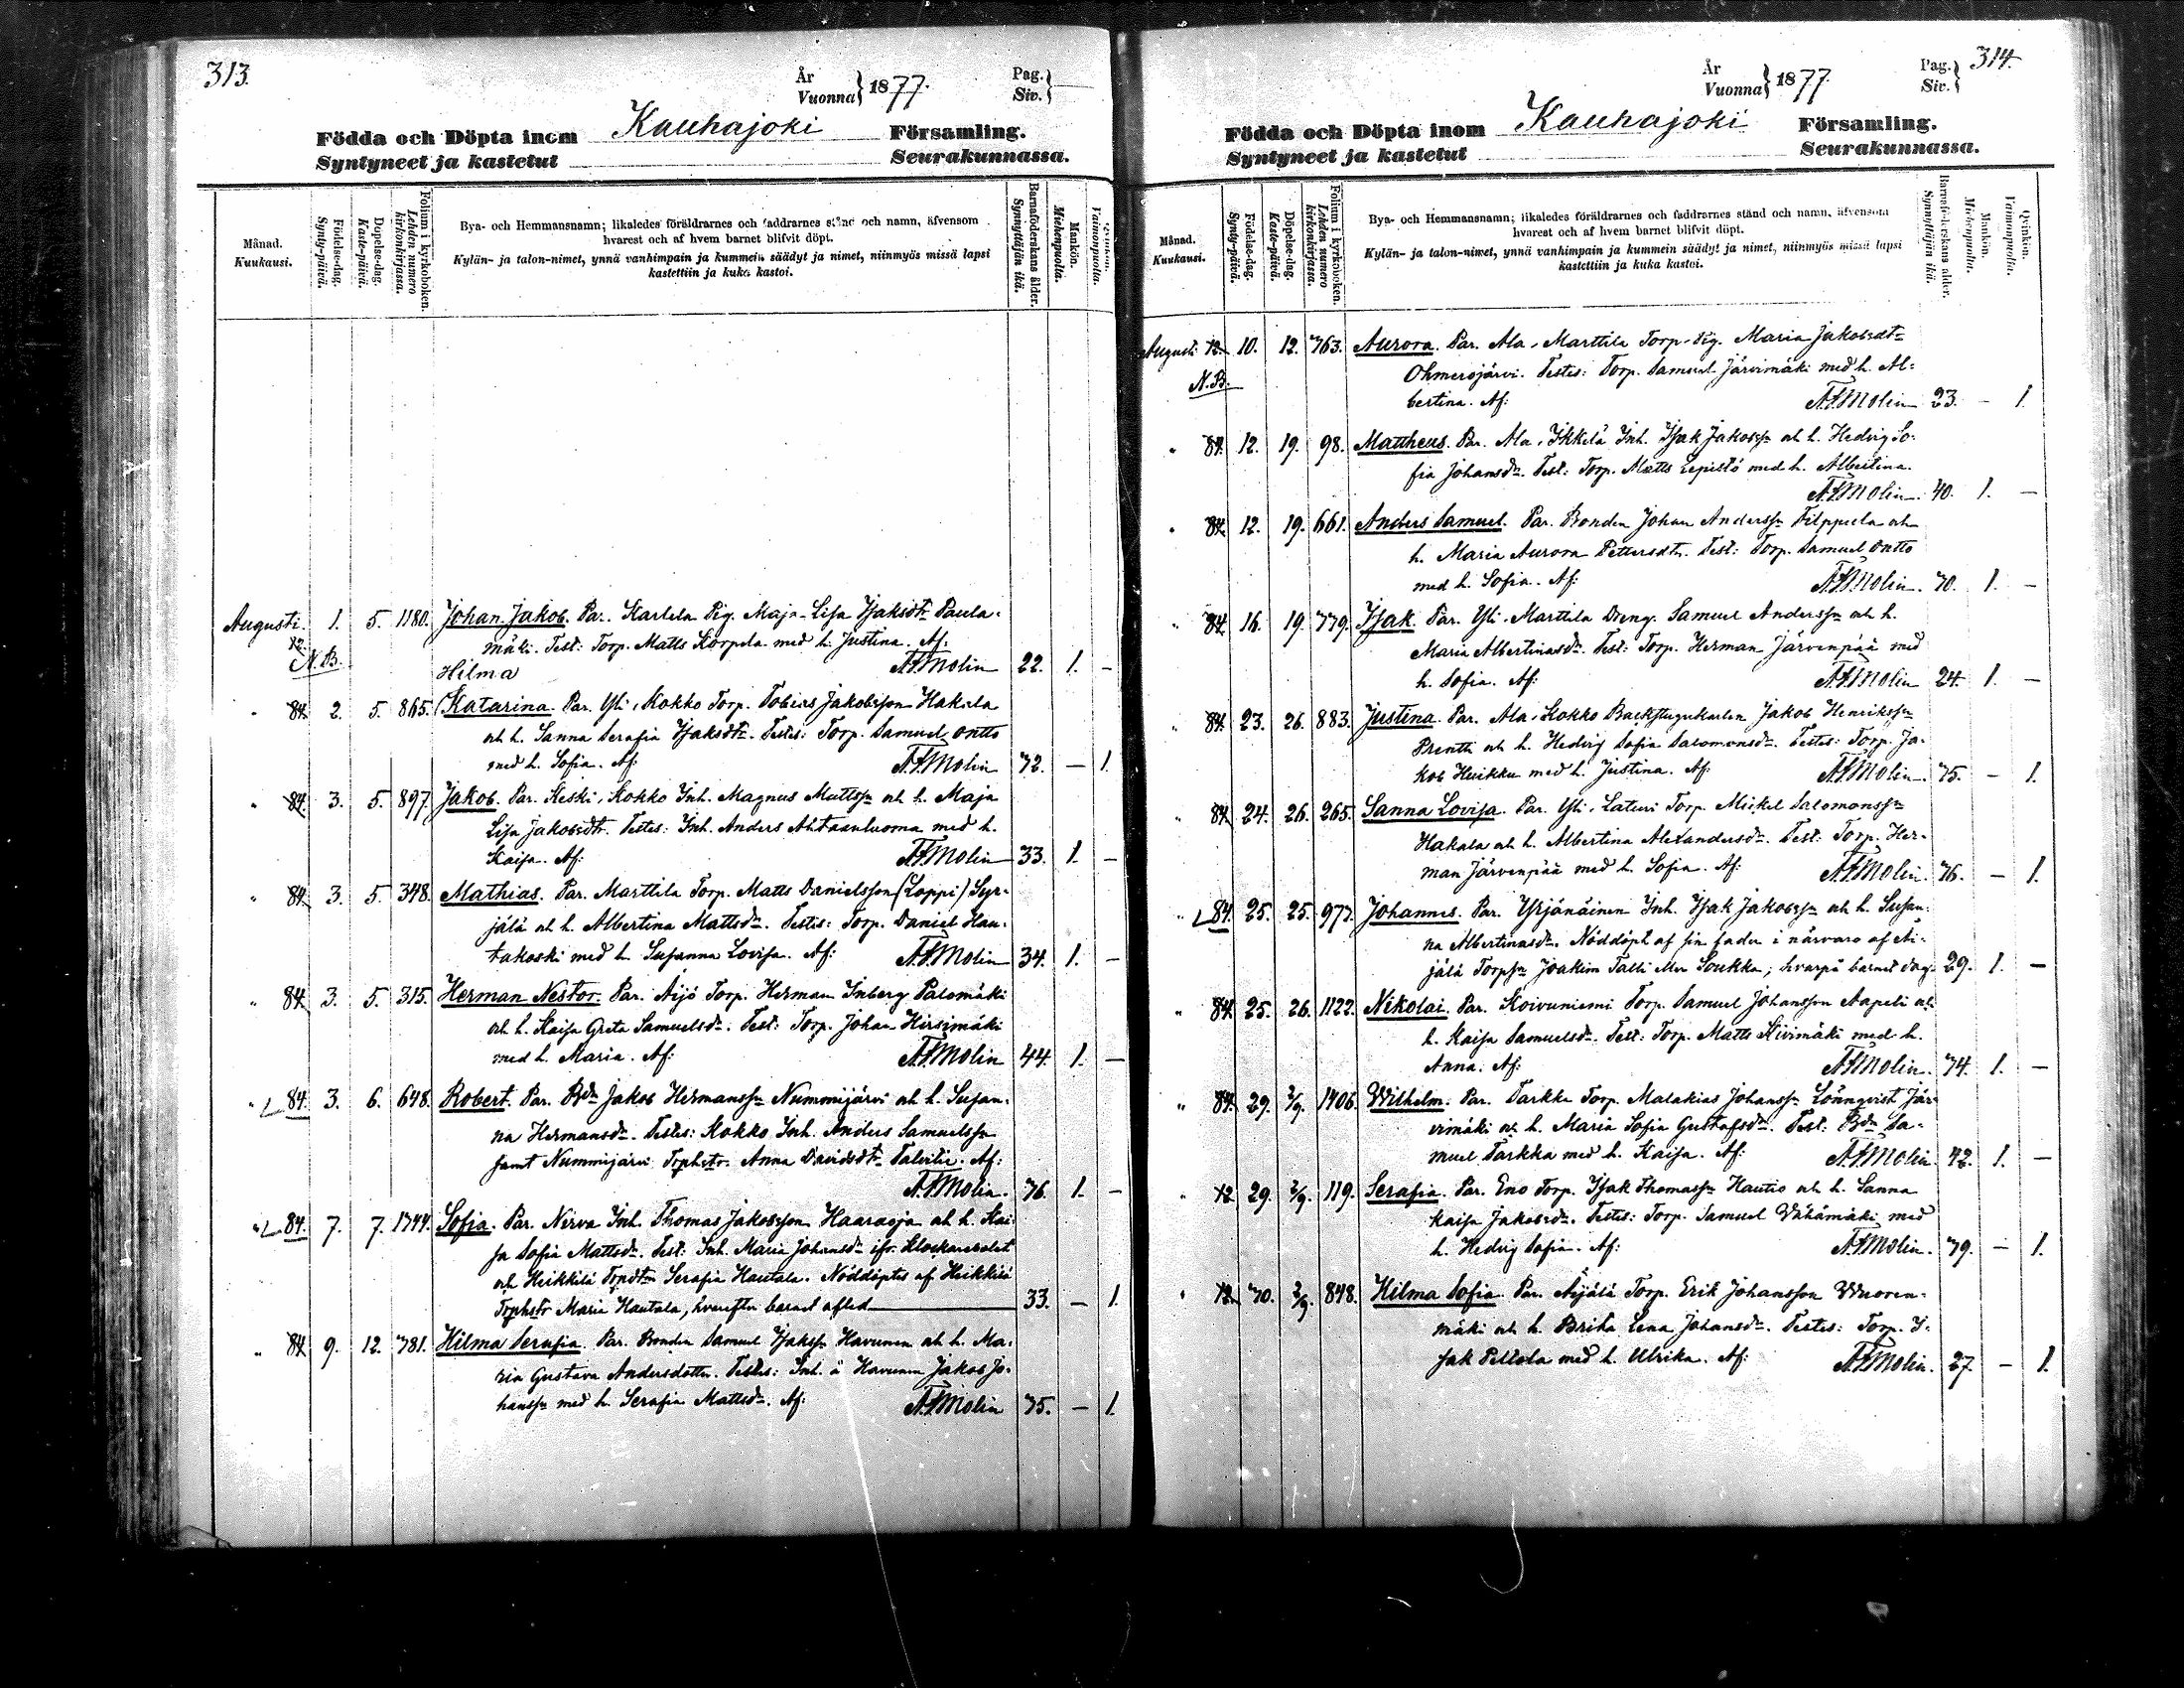 313.
År
Vuonna} 1877.
Pag.
Siv.}
Födda och Döpta inom Kauhajoki Församling.
Syntyneet ja kastetut Seurakunnassa.
Månad.
Kuukausi.
Födelse-dag.
Synty-päivä.
Döpelse-dag.
Kaste-päivä.
Folium i kyrkoboken.
Lehden numero
kirkonkirjassa.
Bya- och Hemmansnamn; likaledes föräldrarnes och faddrarnes stånd och namn, äfvensom
hvarest och af hvem barnet blifvit döpt.
Kylän- ja talon-nimet, ynnä vanhimpain ja kummein säädyt ja nimet, niinmyös missä lapsi
kastettiin ja kuka kastoi.
Barnaföderskans ålder.
Synnyttäjän ikä.
Mankön.
Miehenpuolta.
Qvinkön.
Vaimonpuolta.
Augusti. 1. 5. 1180. Johan Jakob. Par. Karhla Pig. Maja-Lisa Isaksdtr Paula-
12. N.B. mäki. Test: Torp. Matts Korpela med h. Justina. Af:
Hilma A.F.Molin 22. 1. –
" 84. 2. 5. 865. Katarina. Par. Yli-Kokko Torp. Tobias Jakobsson Hakola
och h. Sanna Serafia Isaksdtr. Testes: Torp. Samuel Ontto
med h. Sofia. Af: A.F.Molin 72. – 1.
" 84. 3. 5. 897. Jakob. Par. Keski-Kokko Inh. Magnus Mattsn och h. Maja
Lisa Jakobsdtr. Testes: Inh. Anders Ahtaanluoma med h.
Kaisa. Af: A.F.Molin 33. 1. –
" 84. 3. 5. 348. Mathias. Par. Marttila Torp. Matts Danielsson (Loppi) Syr-
jälä och h. Albertina Mattsdr. Testes: Torp. Daniel Hau-
takoski med h. Susanna Lovisa. Af: A.F.Molin 34. 1. –
" 84. 3. 5. 315. Herman Nestor. Par. Äijö Torp. Herman Inberg Palomäki
och h. Kaisa Greta Samuelsdr. Test: Torp. Johan Hirsimäki
med h. Maria. Af: A.F.Molin 44. 1. –
" 84. 3. 6. 648. Robert. Par. Bdn Jakob Hermanssn Nummijärvi och h. Susan-
na Hermansdr. Testes: Kokko Inh. Anders Samuelssn
samt Nummijärvi Tophstr. Anna Davidsdtr Talvitie. Af:
A.F.Molin. 76. 1. –
" 84. 7. 7. 1744. Sofia. Par. Nirva Inh. Thomas Jakobsson Haaraoja och h. Kai-
sa Sofia Mattsdr. Test: Inh. Maria Johansdr ifr. Klockarebolet
och Heikkilä Topdtr Serafia Hautala. Nöddöptes af Heikkilä
Tophstr Maria Hautala, hvarefter barnet afled 33. – 1.
" 84. 9. 12. 781. Hilma Serafia. Par. Bonden Samuel Isakssn Havunen och h. Ma-
ria Gustava Andersdotter. Testes: Inh. å Havunen Jakob Jo-
hanssn med h. Serafia Mattsdr. Af: A.F.Molin 75. – 1.
314.
År
Vuonna} 1877.
Pag.
Siv.}
Födda och Döpta inom Kauhajoki Församling.
Syntyneet ja kastetut Seurakunnassa.
Månad.
Kuukausi.
Födelse-dag.
Synty-päivä.
Döpelse-dag.
Kaste-päivä.
Folium i kyrkoboken.
Lehden numero
kirkonkirjassa.
Bya- och Hemmansnamn; likaledes föräldrarnes och faddrarnes stånd och namn, äfvensom
hvarest och af hvem barnet blifvit döpt.
Kylän- ja talon-nimet, ynnä vanhimpain ja kummein säädyt ja nimet, niinmyös missä lapsi
kastettiin ja kuka kastoi.
Barnaföderskans ålder.
Synnyttäjän ikä.
Mankön.
Miehenpuolta.
Qvinkön.
Vaimonpuolta.
Augusti 12. 10. 12. 763. Aurora. Par. Ala-Marttila Torp. Pig. Maria Jakobsdtr
N.B. Ohmerojärvi. Testes: Torp. Samuel Järvimäki med h. Al-
bertina. Af: A.F.Molin 23. – 1.
" 84. 12. 19. 98. Mattheus. Par. Ala-Ikkelä Inh. Isak Jakobssn och h. Hedvig So-
fia Johansdr. Test: Torp. Matts Lepistö med h. Albertina.
A.F.Molin. 40. 1. –
" 84. 12. 19. 661. Anders Samuel. Par. Bonden Johan Anderssn Filppula och
h. Maria Aurora Pettersdtr. Test: Torp. Samuel Ontto
med h. Sofia. Af: A.F.Molin. 70. 1. –
" 84. 16. 19. 779. Isak. Par. Yli-Marttila Dreng. Samuel Anderssn och h.
Maria Albertinasdr. Test: Torp. Herman Järvenpää med
h. Sofia. Af: A.F.Molin 24. 1. –
" 84. 23. 26. 883. Justina. Par. Ala-Kokko Backstugukarlen Jakob Henrikssn
Prentti och h. Hedvig Sofia Salomonsdr. Testes: Torp. Ja-
kob Huikku med h. Justina. Af: A.F.Molin. 75. – 1.
" 84. 24. 26. 265. Sanna Lovisa. Par. Yli-Laturi Torp. Mickel Salomonssn
Hakala och h. Albertina Alexandersdr. Test: Torp. Her-
man Järvenpää med h. Sofia. Af: A.F.Molin. 76. – 1.
" 84. 25. 25. 977. Johannes. Par. Yrjänäinen Inh. Isak Jakobssn och h. Susan-
na Albertinasdr. Nöddöpt af sin fader i närvaro af Äi-
jälä Torpsn Joakim Talli eller Loukko; hvarpå barnet dog. 29. 1. –
" 84. 25. 26. 1122. Nikolai. Par. Koivuniemi Torp. Samuel Johansson Aapeli och
h. Kaisa Samuelsdr. Test: Torp. Matts Kivimäki med h.
Anna. Af: A.F.Molin. 74. 1. –
" 84. 29. 2/9. 1406. Wilhelm. Par. Tarkka Torp. Malakias Johanssn Lönnqvist Jär-
vimäki och h. Maria Sofia Gustafsdr. Test: Bdn Sa-
muel Tarkka med h. Kaisa. Af: A.F.Molin. 42. 1. –
" 12. 29. 2/9. 119. Serafia. Par. Eno Torp. Isak Thomassn Hautio och h. Sanna
Kaisa Jakobsdr. Testes: Torp. Samuel Vähämäki med
h. Hedvig Sofia. Af: A.F.Molin. 79. – 1.
" 12. 30. 2/9. 848. Hilma Sofia. Par. Äijälä Torp. Erik Johansson Wuoren-
mäki och h. Brita Lena Johansdr. Testes: Torp. I-
sak Peltola med h. Ulrika. Af: A.F.Molin. 27. – 1.